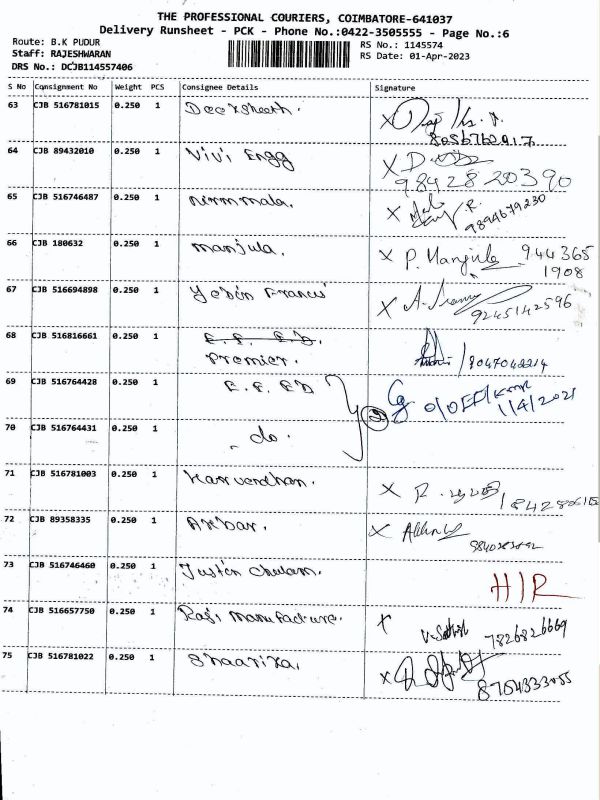 THE PROFESSIONAL COURIERS, COIMBATORE-641037
Delivery Runsheet - PCK - Phone No.:0422-3505555 - Page No.:6
Route: B.K PUDUR
RS No.: 1145574
Staff: RAJESHWARAN
RS Date: 01-Apr-2023
DRS No.: DCJB114557406
S No Consignment No Weight PCS Consignee Details Signature
63 CJB 516781015 0.250 1 Deeksheeth.
8056760917
64 CJB 89432010 0.250 1 Vivi Engg X
9842820390
65 CJB 516746487 0.250 1 Nirmmala. X
9894679230
66 CJB 180632 0.250 1 Manjula. X P. Manjula 944365
1908
67 CJB 516694898 0.250 1 Francis X
9245142596
68 CJB 516816661 0.250 1
Premier. 9047042214
69 CJB 516764428 0.250 1
1/4/2021
70 CJB 516764431 0.250 1 do.
71 CJB 516781003 0.250 1 X
72 CJB 89358335 0.250 1 Akbar. X
73 CJB 516746460 0.250 1 Justin
74 CJB 516657750 0.250 1 Raji Manufacture. X V. Sathish 7826826669
75 CJB 516781022 0.250 1 Shaarika. X